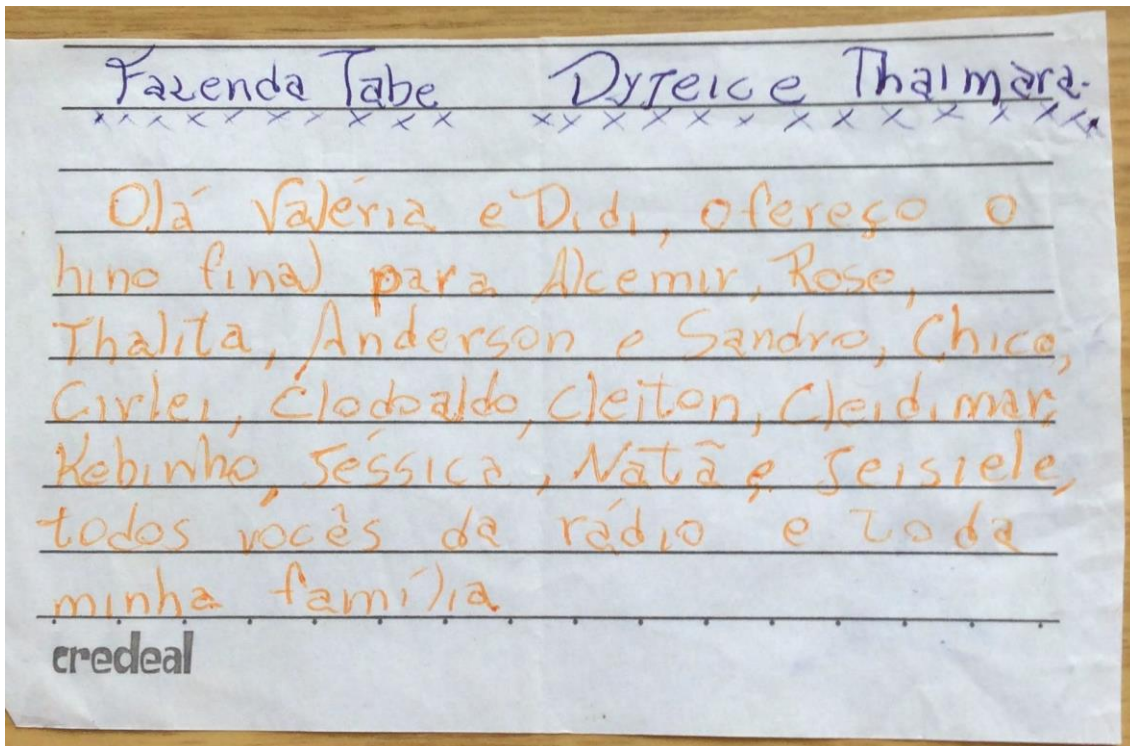 Fazenda Tabe Dyjeice Thaimara.
xxxxxxxxxx xxxxxxxxxxxxx
Olá Valéria e Didi, ofereço o
hino final para Alcemir, Rose,
Thalita, Anderson e Sandro, Chico,
Cirlei, Clodoaldo, Cleiton, Cleidimar,
Kebinho, Jéssica, Natã e Jeisiele,
todos vocês da rádio e toda
minha família
credeal